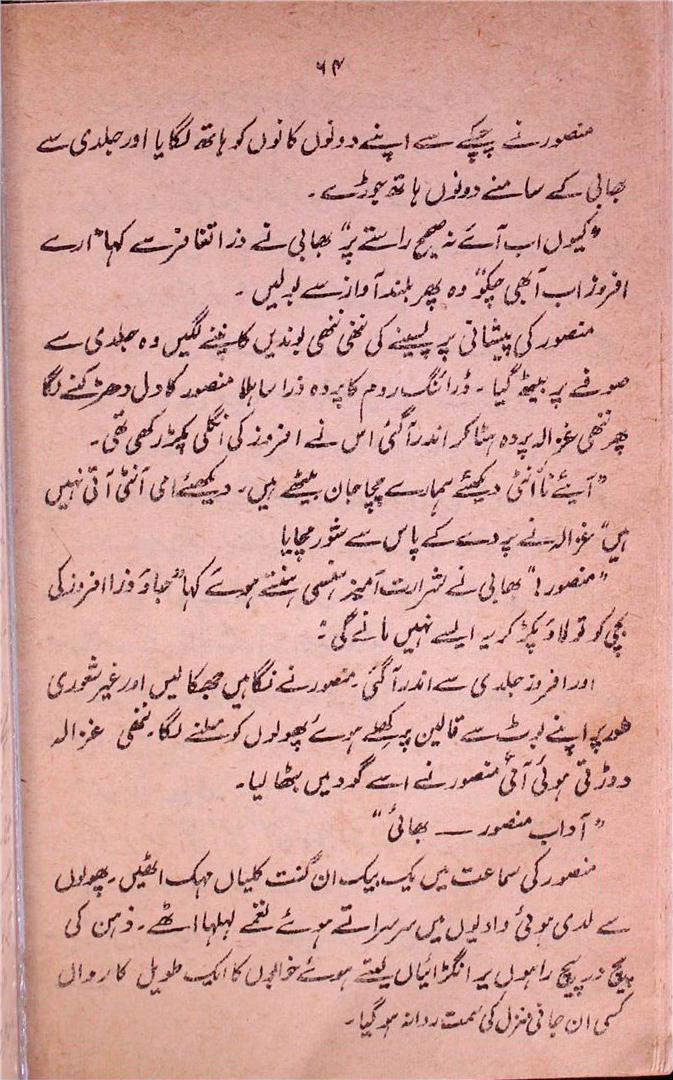 ۶۴
منصور نے چپکے سے اپنے دونوں کانوں کو ہاتھ لگایا اور جلدی سے
بھابی کے سامنے دونوں ہاتھ جوڑے۔
"کیوں اب آئے نہ صحیح راستے پر" بھابی نے ذرا تفاخر سے کہا "ارے
افروز اب آبھی چکو" وہ پھر بلند آواز سے بولیں۔
منصور کی پیشانی پر پسینے کی ننھی ننھی بوندیں کانپنے لگیں وہ جلدی سے
صوفے پر بیٹھ گیا۔ ڈرائنگ روم کا پردہ ذرا سا ہلا منصور کا دل دھڑکنے لگا
پھر ننھی غزالہ پردہ ہٹا کر اندر آگئی اس نے افروز کی انگلی پکڑ رکھی تھی۔
"آیئے نا آنٹی دیکھئے ہمارے چچا جان بیٹھے ہیں۔ دیکھئے امی آنٹی آتی نہیں
ہیں" غزالہ نے پردے کے پاس سے شور مچایا
"منصور!" بھابی نے شرارت آمیز ہنسی ہنستے ہوئے کہا "جاؤ ذرا افروز کی
بچی کو تو لاؤ پکڑ کر یہ ایسے نہیں مانے گی"
اور افروز جلدی سے اندر آگئی۔ منصور نے نگاہیں جھکا لیں اور غیر شعوری
طور پر اپنے بوٹ سے قالین پر کھلے ہوئے پھولوں کو مسلنے لگا۔ ننھی غزالہ
دوڑتی ہوئی آئی منصور نے اسے گود میں بٹھا لیا۔
"آداب منصور ـــ بھائی"
منصور کی سماعت میں یک بیک ان گنت کلیاں مہک اٹھیں۔ پھولوں
سے لدی ہوئی وادیوں میں سرسراتے ہوئے نغمے لہلہا اٹھے۔ ذہن کی
پیچ در پیچ راہوں پر انگڑائیاں لیتے ہوئے خوابوں کا ایک طویل کارواں
کسی ان جانی منزل کی سمت روانہ ہوگیا۔